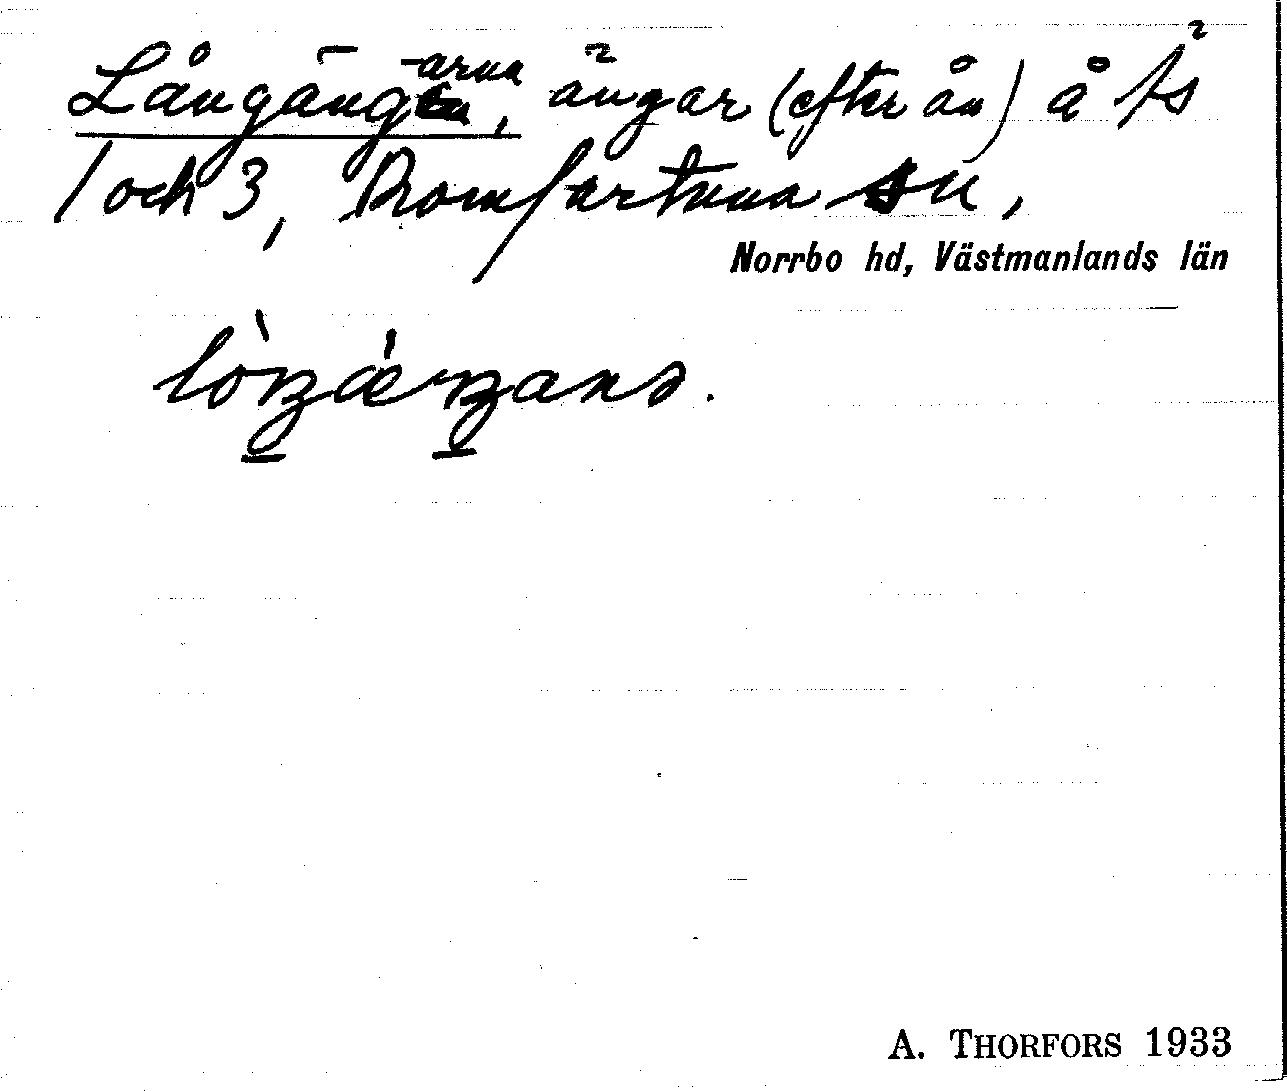 Långäng -arna, ängar (efter ån) å Ås
1 och 3, Romfartuna sn,
Norrbo hd, Västmanlands län
A. THORFORS 1933